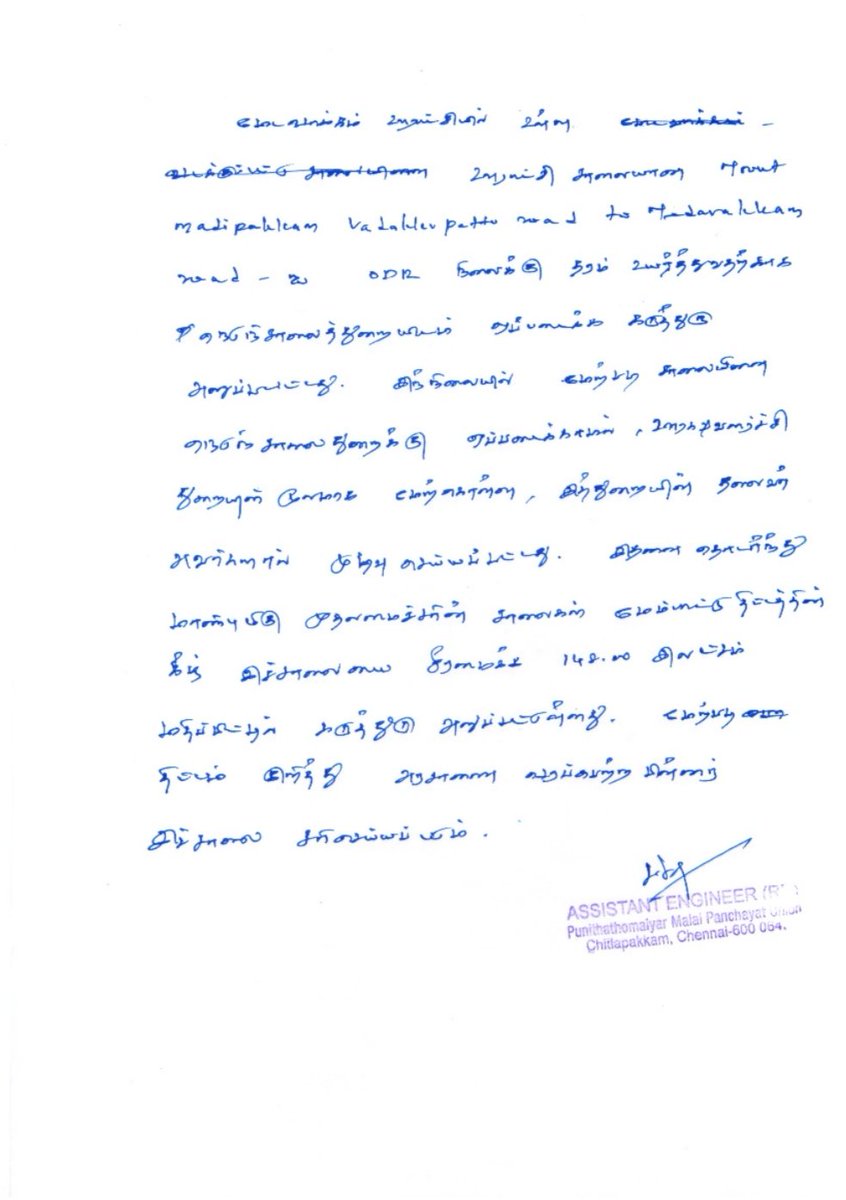 மேடவாக்கம் ஊராட்சியில் உள்ள மேடவாக்கம் -
வடக்குப்பட்டு சாலையினை ஊராட்சி சாலையான Mount
madipakkam Vadakkupattu road to Medavakkam
road - ஐ ODR நிலைக்கு தரம் உயர்த்துவதற்காக
நெடுஞ்சாலைத்துறையிடம் ஒப்படைக்க கருத்துரு
அனுப்பப்பட்டது. இந்நிலையில் மேற்படி சாலையினை
நெடுஞ்சாலை துறைக்கு ஒப்படைக்காமல், ஊரகவளர்ச்சி
துறையின் மூலமாக மேற்கொள்ள, இத்துறையின் தலைவர்
அவர்களால் முடிவு செய்யப்பட்டது. இதனை தொடர்ந்து
மாண்புமிகு முதலமைச்சரின் சாலைகள் மேம்பாட்டு திட்டத்தின்
கீழ் இச்சாலையை சீரமைக்க இலட்சம்
மதிப்பீட்டில் கருத்துரு அனுப்பப்பட்டுள்ளது. மேற்படி
திட்டம் குறித்து அரசாணை வரப்பெற்ற பின்னர்
இச்சாலை சரிசெய்யப்படும்.
ASSISTANT ENGINEER
Punithathomaiyar Malai Panchayat Union
Chitlapakkam, Chennai-600 064.